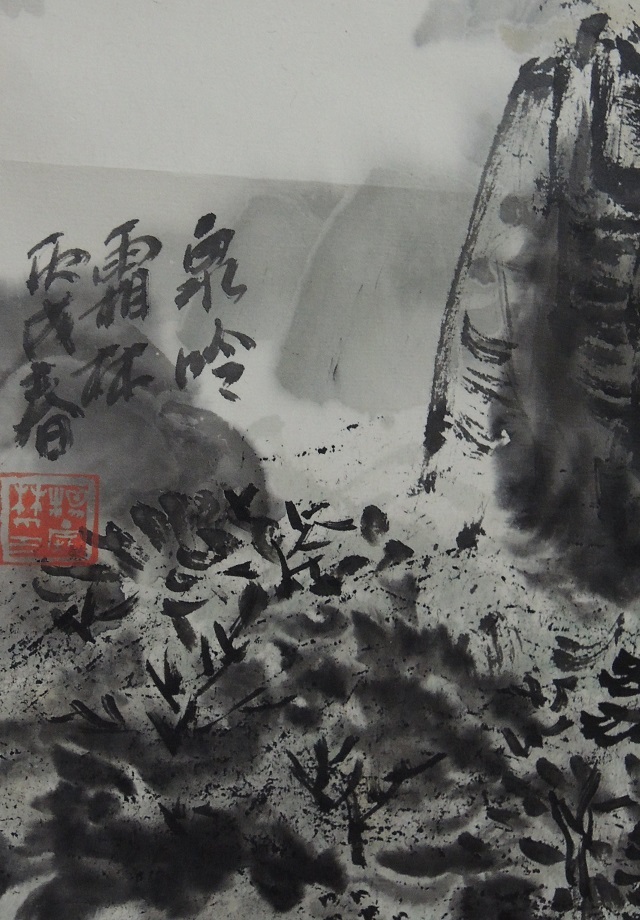 泉吟
霜林
丙戌春